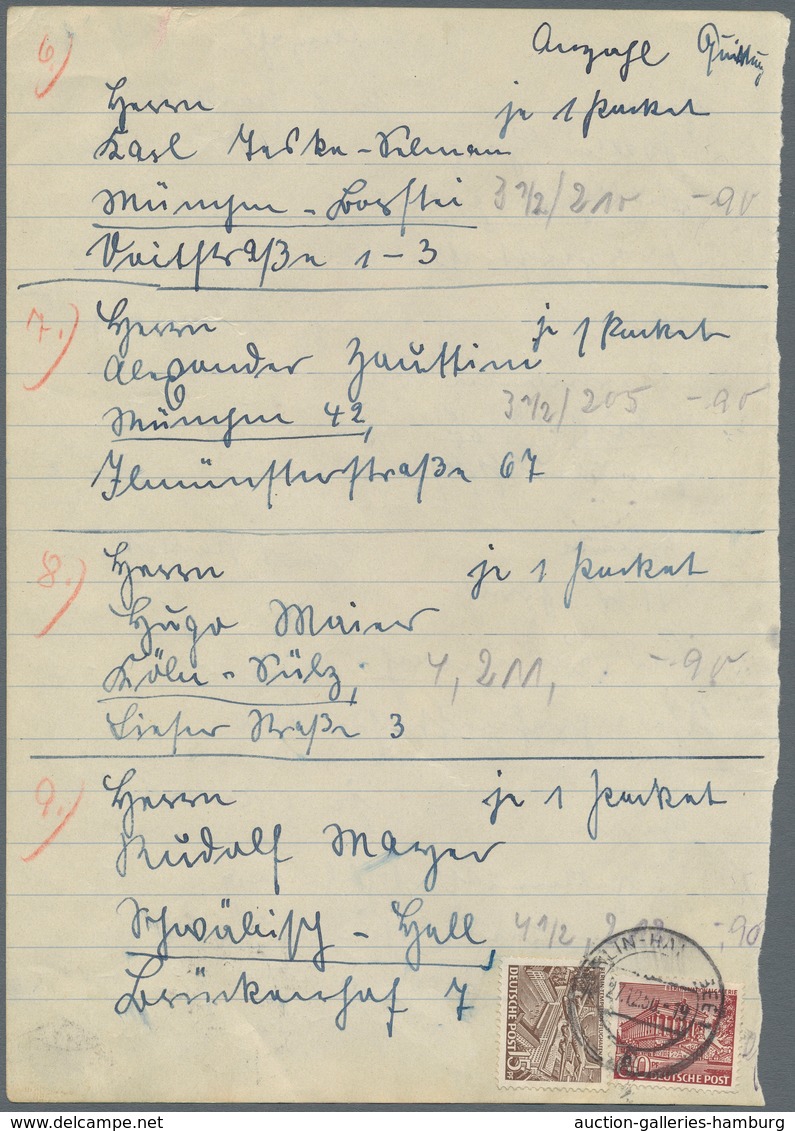 Anzahl Quittung
6)
Herrn je 1 Packet
Karl Jeska-Selmann
München-Borstei 3 1/2/210 -90
Voitstraße 1-3
7.)
Herrn je 1 Packet
Alexander
München 42, 3 1/2/205 -90
Ilmünsterstraße 67
8.)
Herrn je 1 Packet
Hugo Maier
Köln-Sülz, 4, 211, -90
Lieser Straße 3
9.)
Herrn je 1 Packet
Rudolf Mayer
Schwäbisch-Hall, 4 1/2, 212 -,90
Brückenhof 7
DEUTSCHE POST 15
DEUTSCHE POST
auction-galleries-hamburg